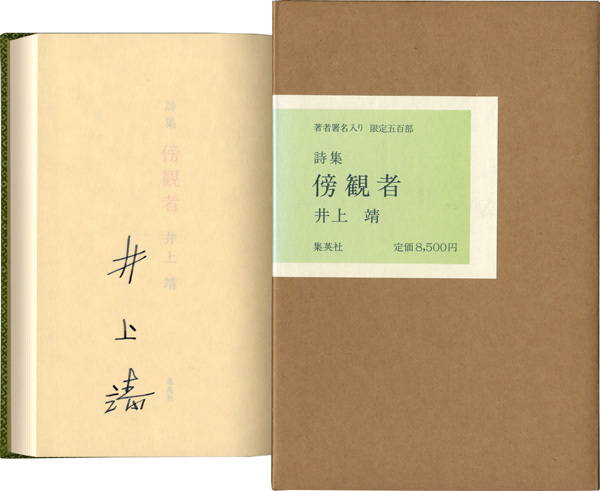 詩集
傍観者
井上靖
集英社
井上靖
著者署名入り 限定五百部
詩集
傍観者
井上 靖
集英社 定価8,500円